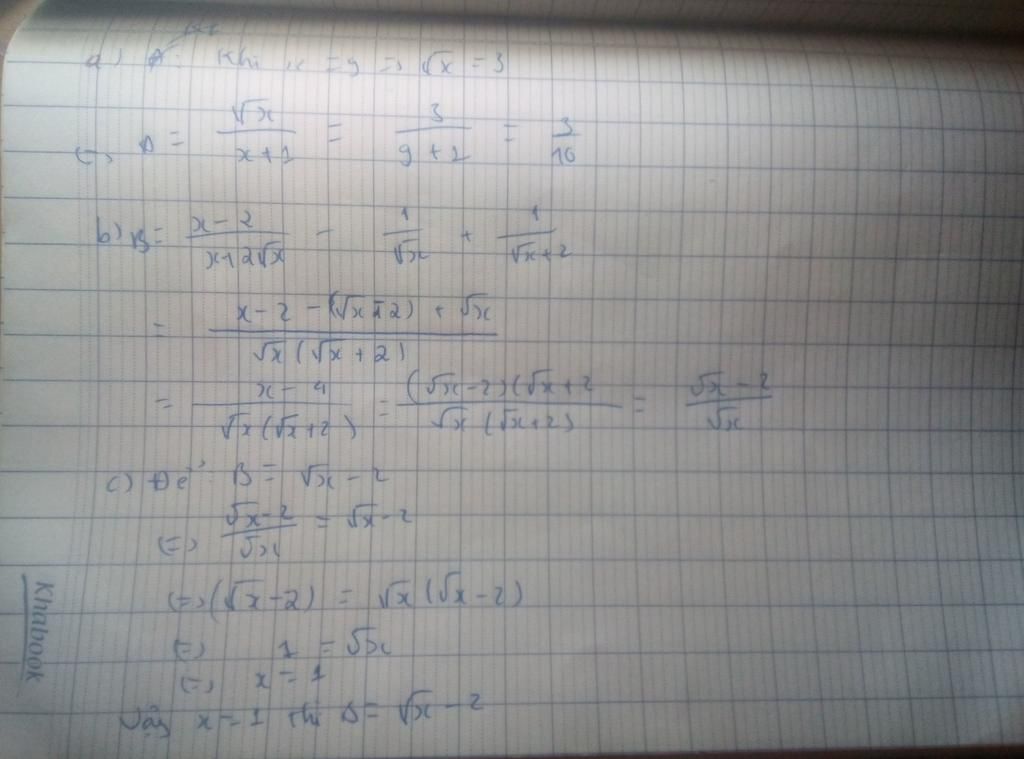 a) Khi x = 9 => √x = 3
<=> A = √x/(x+1) = 3/(9+1) = 3/10
b) B = (x-2)/(x+2√x) - 1/√x + 1/(√x+2)
= (x-2-(√x+2)+√x)/(√x(√x+2))
= (x-4)/(√x(√x+2)) = (√x-2)(√x+2/(√x(√x+2)) = (√x-2)/√x
c) Để: B = √x - 2
<=> (√x-2)/√x = √x-2
<=> (√x-2) = √x(√x-2)
<=> 1 = √x
<=> x = 1
Vậy x = 1 thì = √x - 2
Khabook